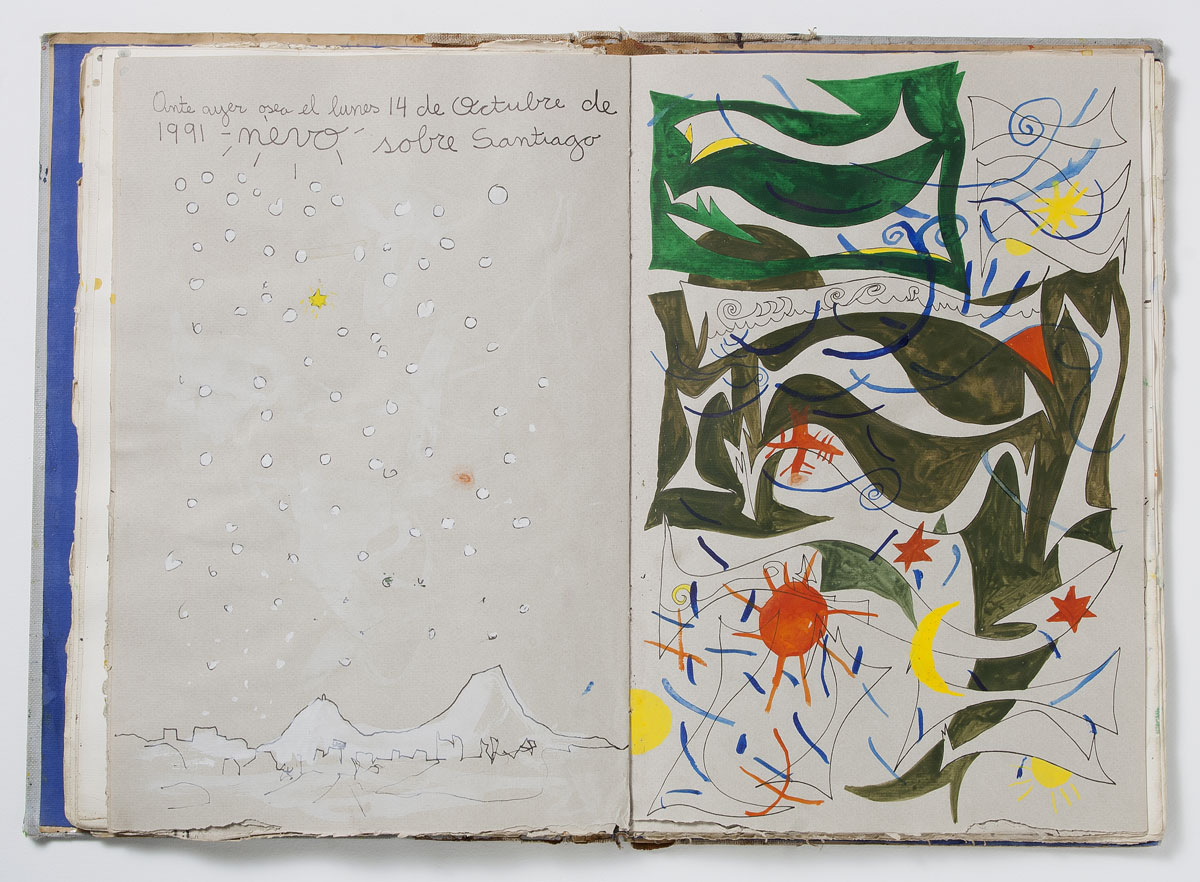 Ante ayer osea el lunes 14 de Octubre de
1991 - nevo - sobre Santiago